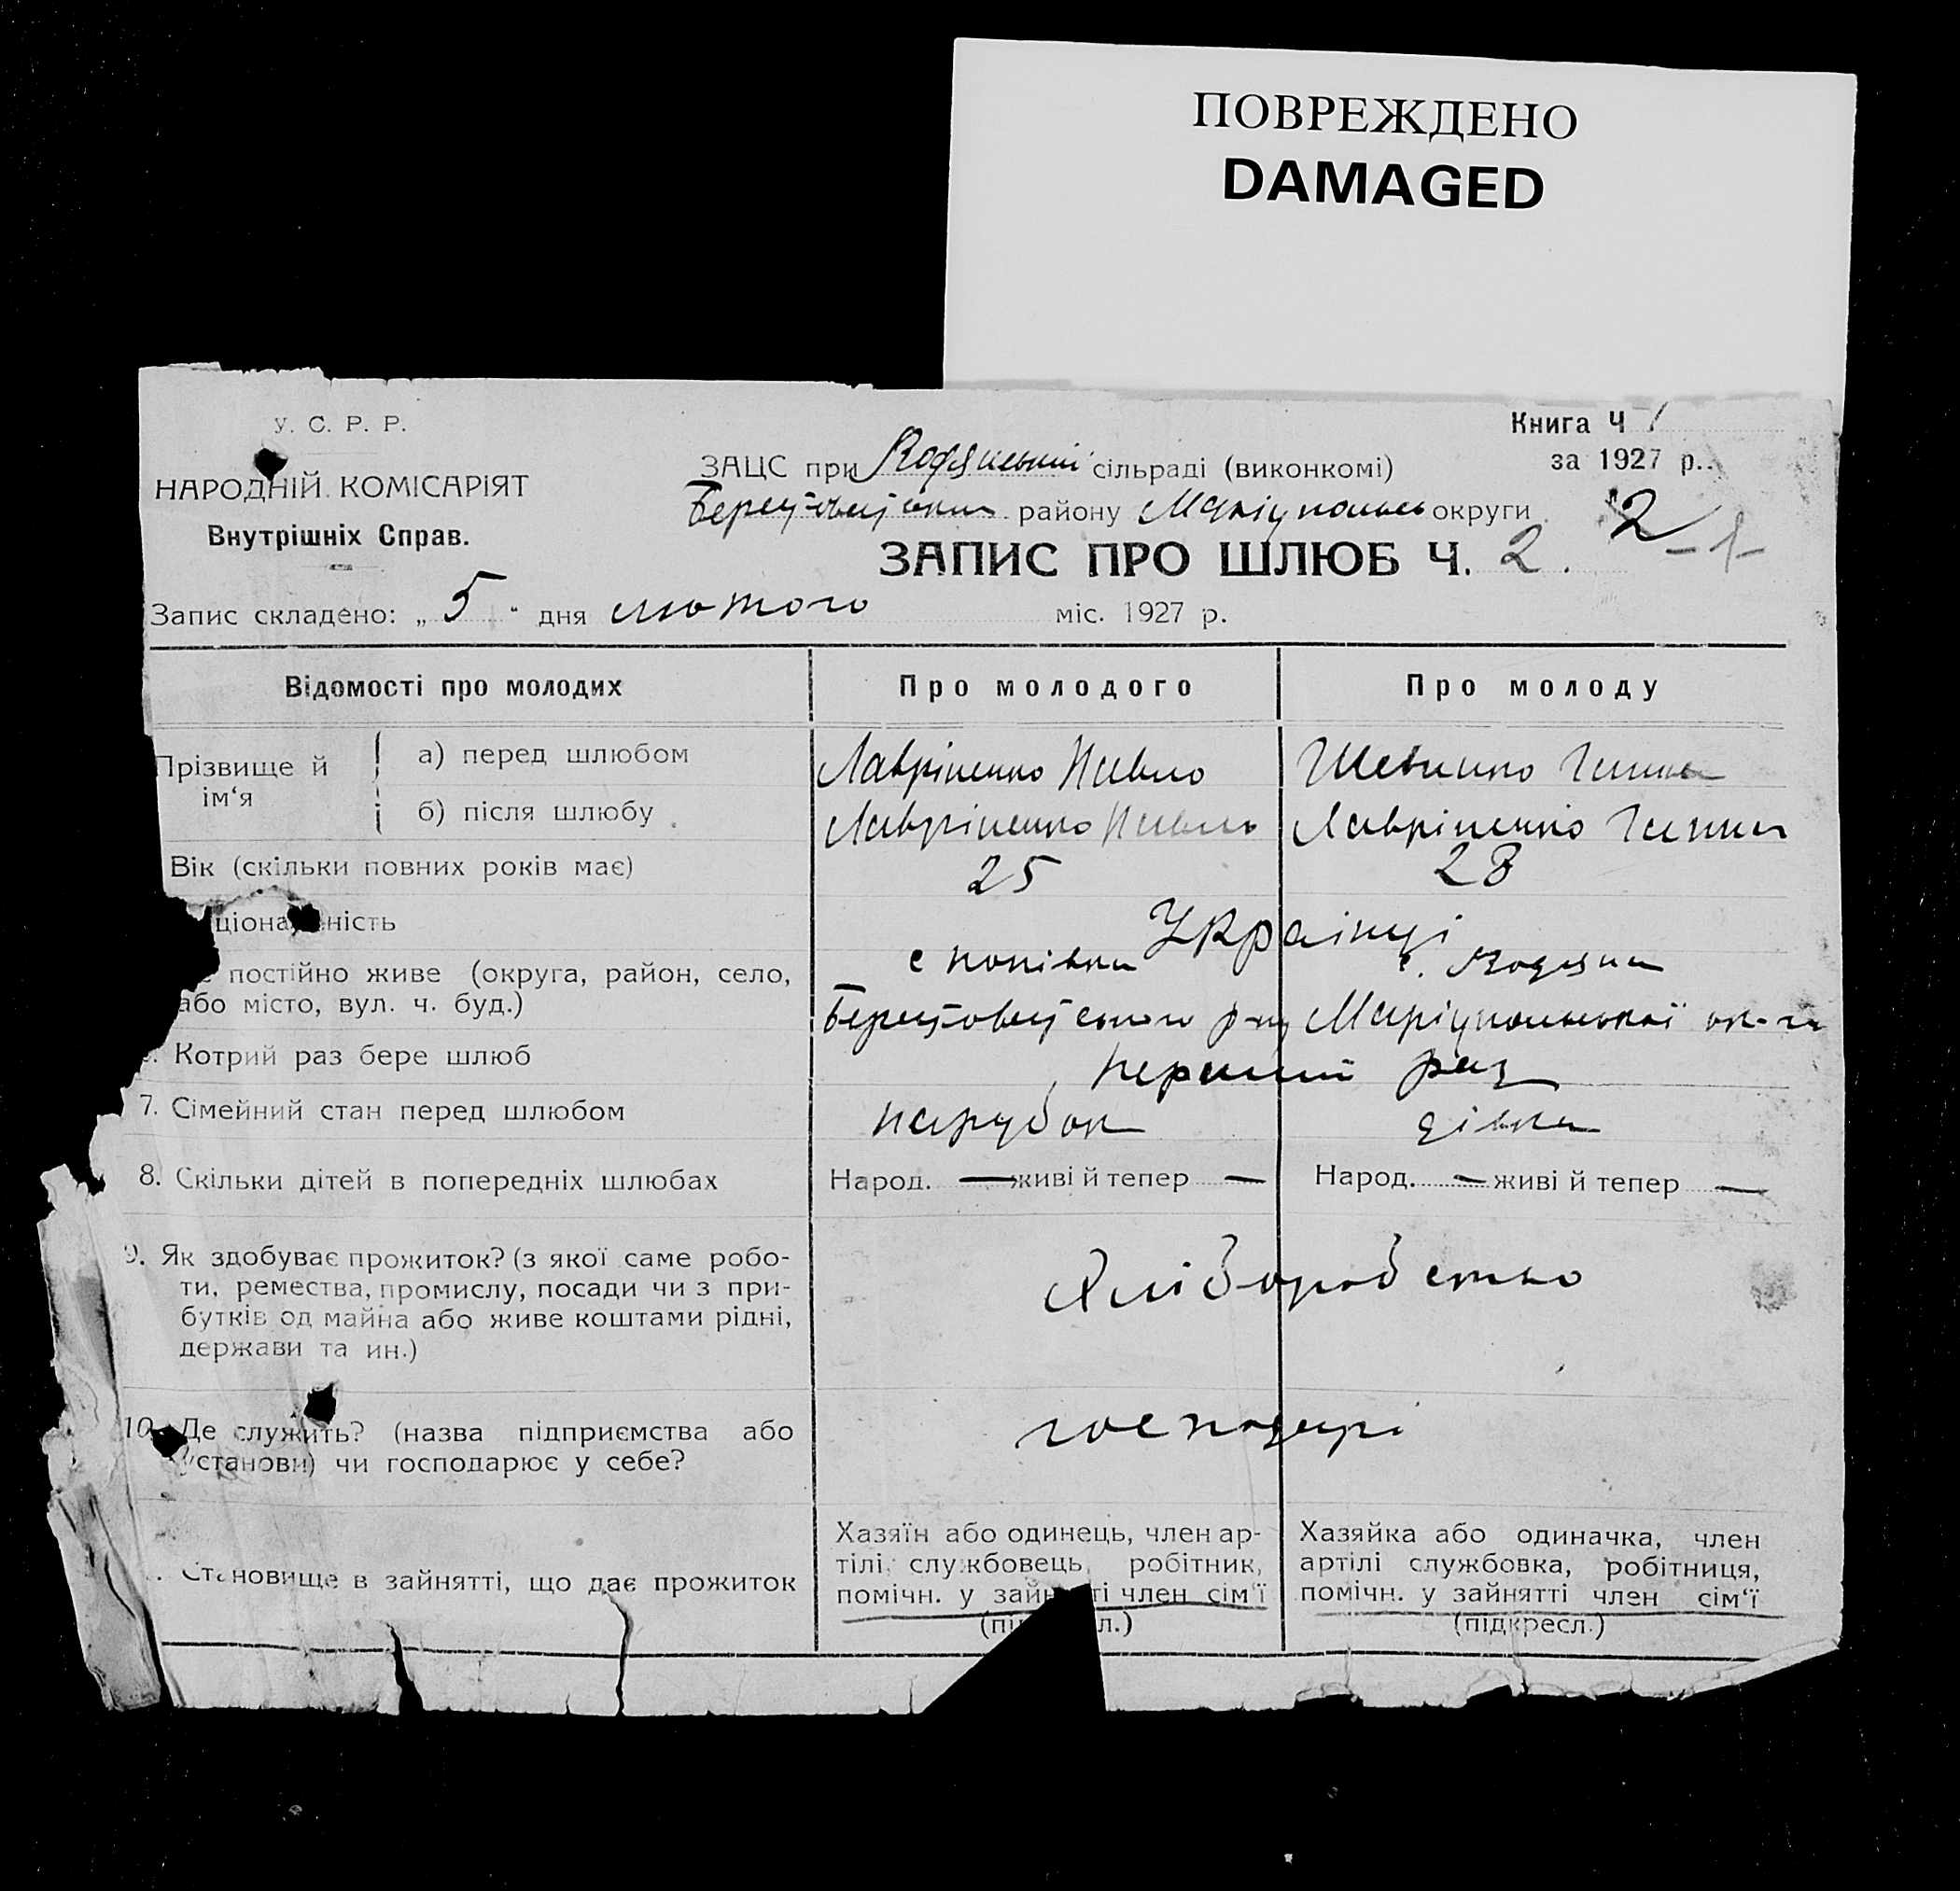 ПОВРЕЖДЕНО
DAMAGED
У. С. Р. Р.
НАРОДНІЙ КОМІСАРІЯТ
Внутрішніх Справ.
Книга Ч 1
за 1927 р.
ЗАЦС при Водянській сільраді (виконкомі)
району Маріупольсь округи
2 -1-
ЗАПИС ПРО ШЛЮБ Ч. 2.
Запис складено: „ 5 " дня лютого міс. 1927 р.
Відомості про молодих
Про молодого
Про молоду
Прізвище й ім'я
а) перед шлюбом
Лавріненко Павло
Шевченко Ганна
б) після шлюбу
Лавріненко Павло
Лавріненко Ганна
Вік (скільки повних років має)
25
28
ціона ність
Українці
постійно живе (округа, район, село,
або місто, вул. ч. буд.)
с Попівки
с. Водяна
р-ну Маріупольської ок-ги
Котрий раз бере шлюб
перший раз
7. Сімейний стан перед шлюбом
парубок
дівка
8. Скільки дітей в попередніх шлюбах
Народ. — живі й тепер —
Народ. — живі й тепер —
9. Як здобуває прожиток? (з якої саме робо-
ти, ремества, промислу, посади чи з при-
бутків од майна або живе коштами рідні,
держави та ин.)
Хліборобство
10. Де служить? (назва підприємства або
установи) чи господарює у себе?
господарі
Становище в зайнятті, що дає прожиток
Хазяїн або одинець, член ар-
тілі, службовець, робітник,
помічн. у зайнятті член сім'ї
(пі л.)
Хазяйка або одиначка, член
артілі службовка, робітниця,
помічн. у зайнятті член сім'ї
(підкресл.)